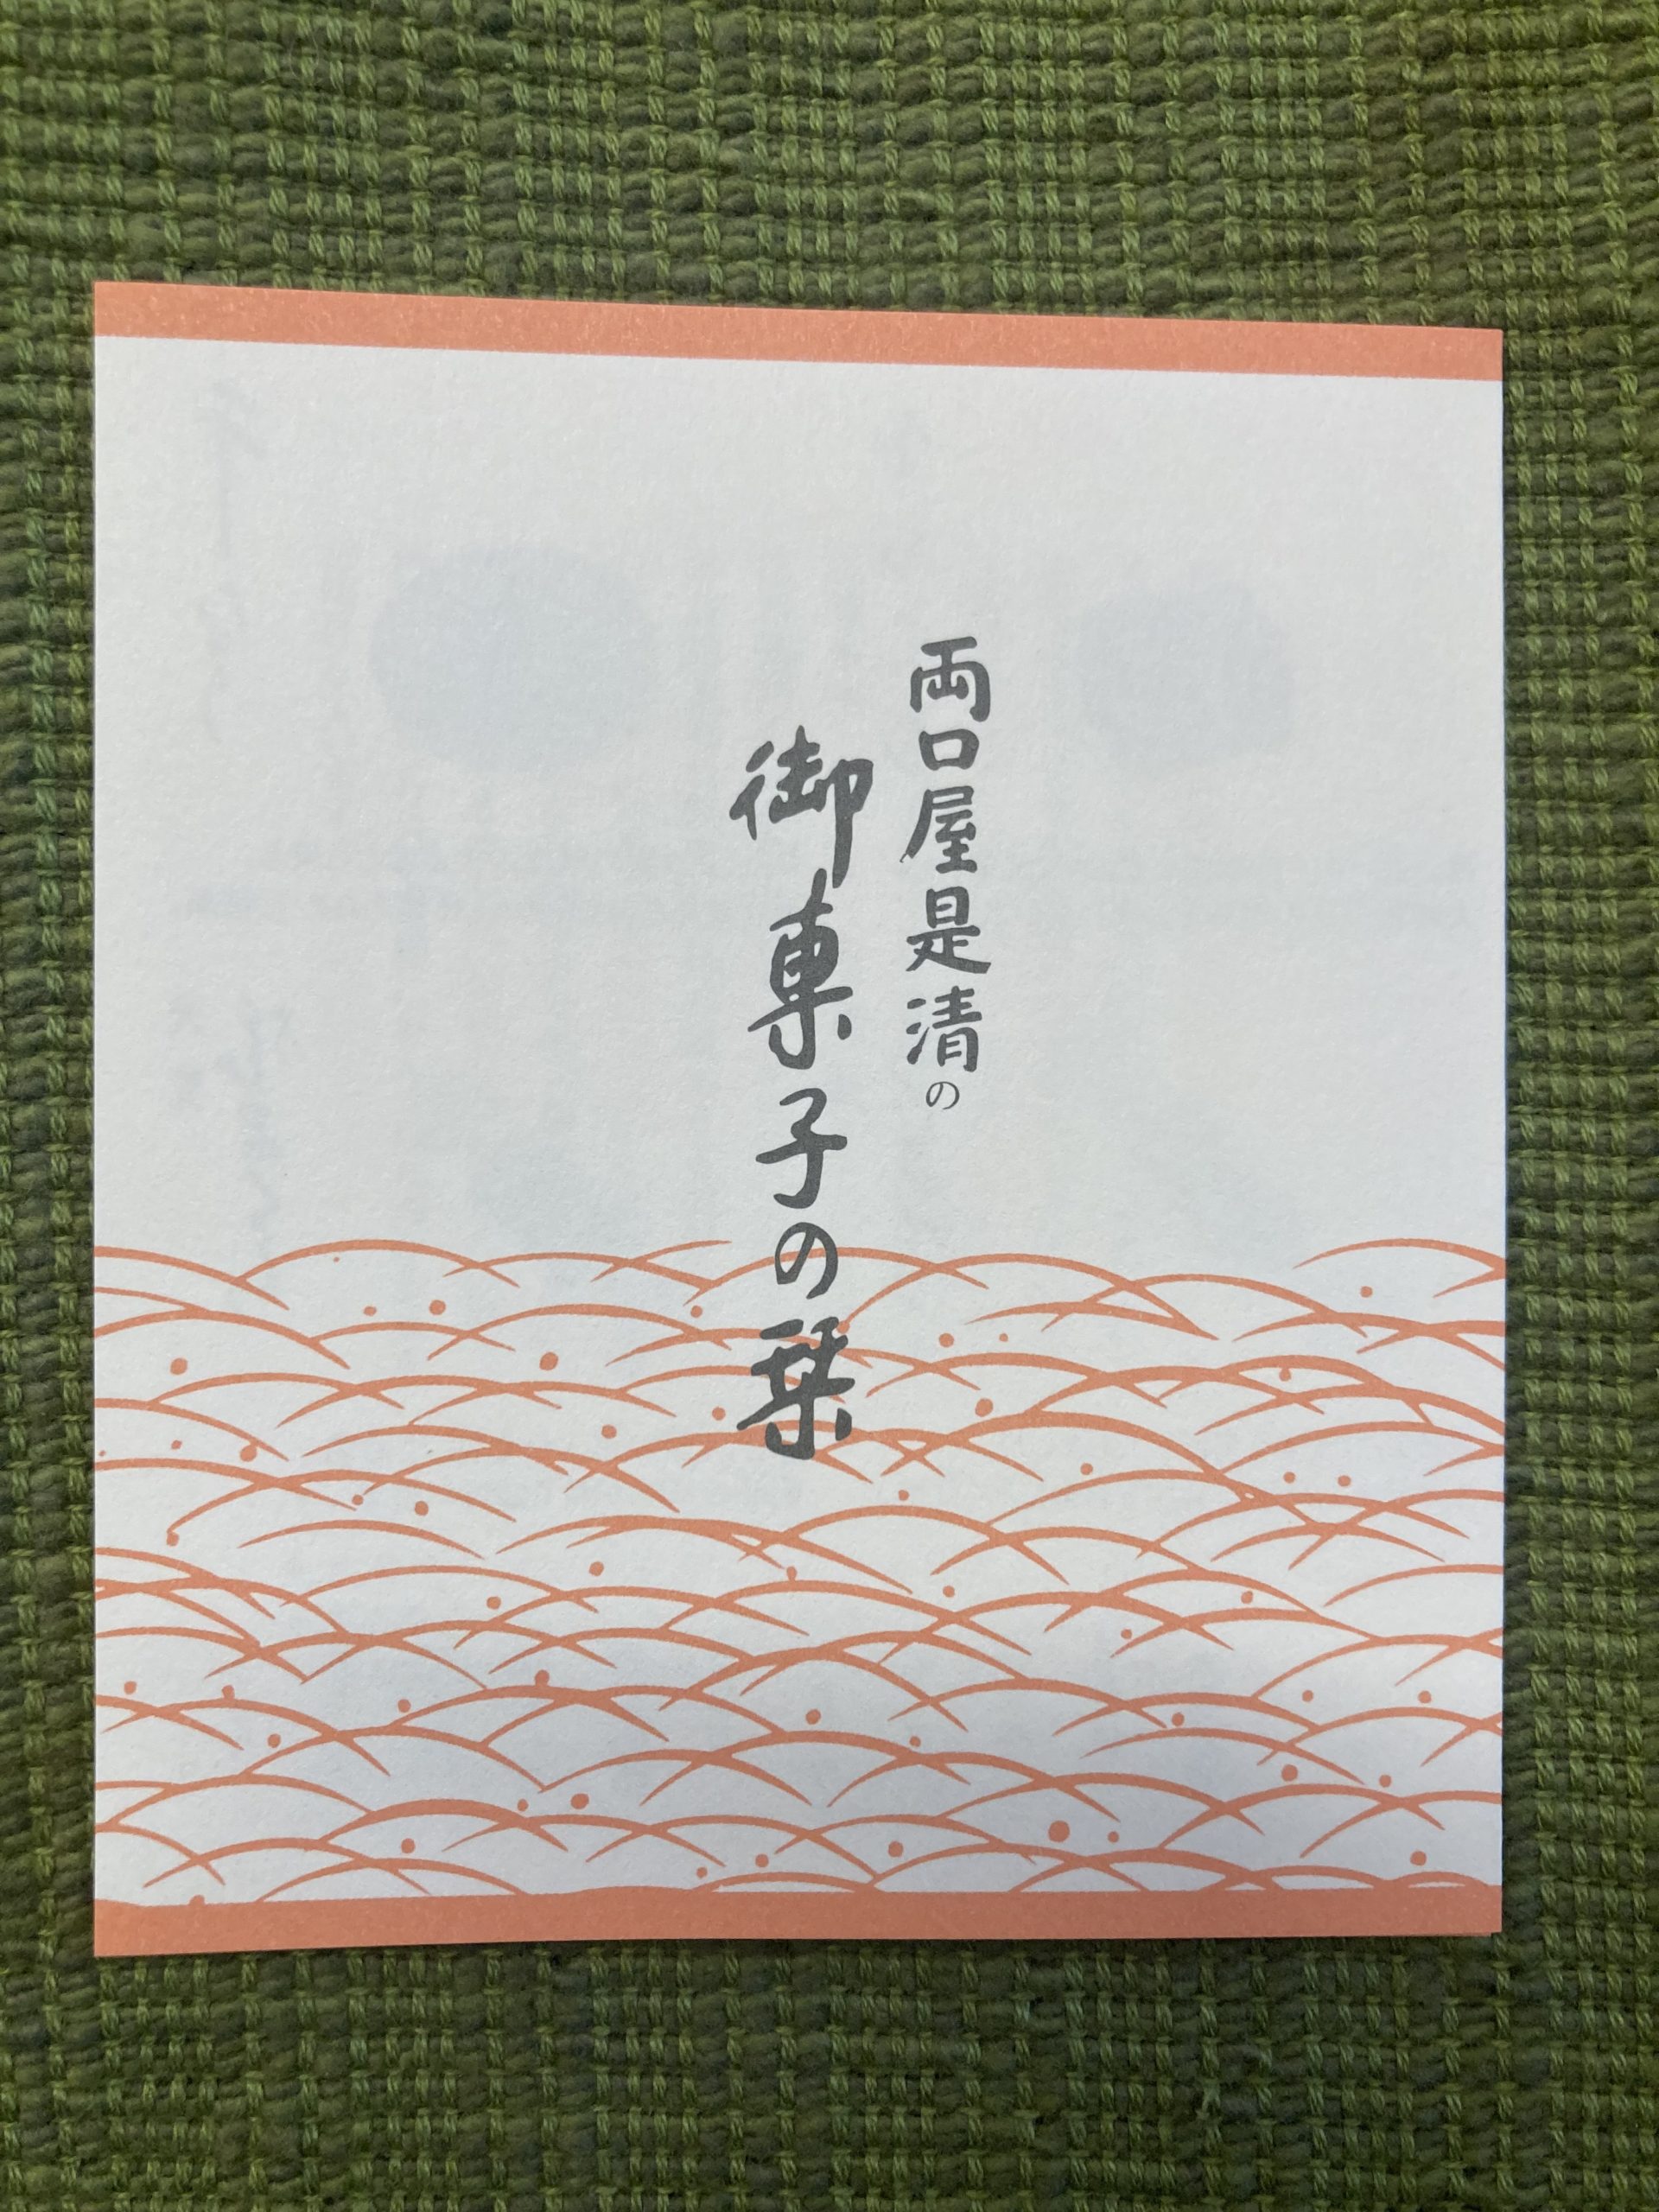 両口屋是清の
御菓子の栞